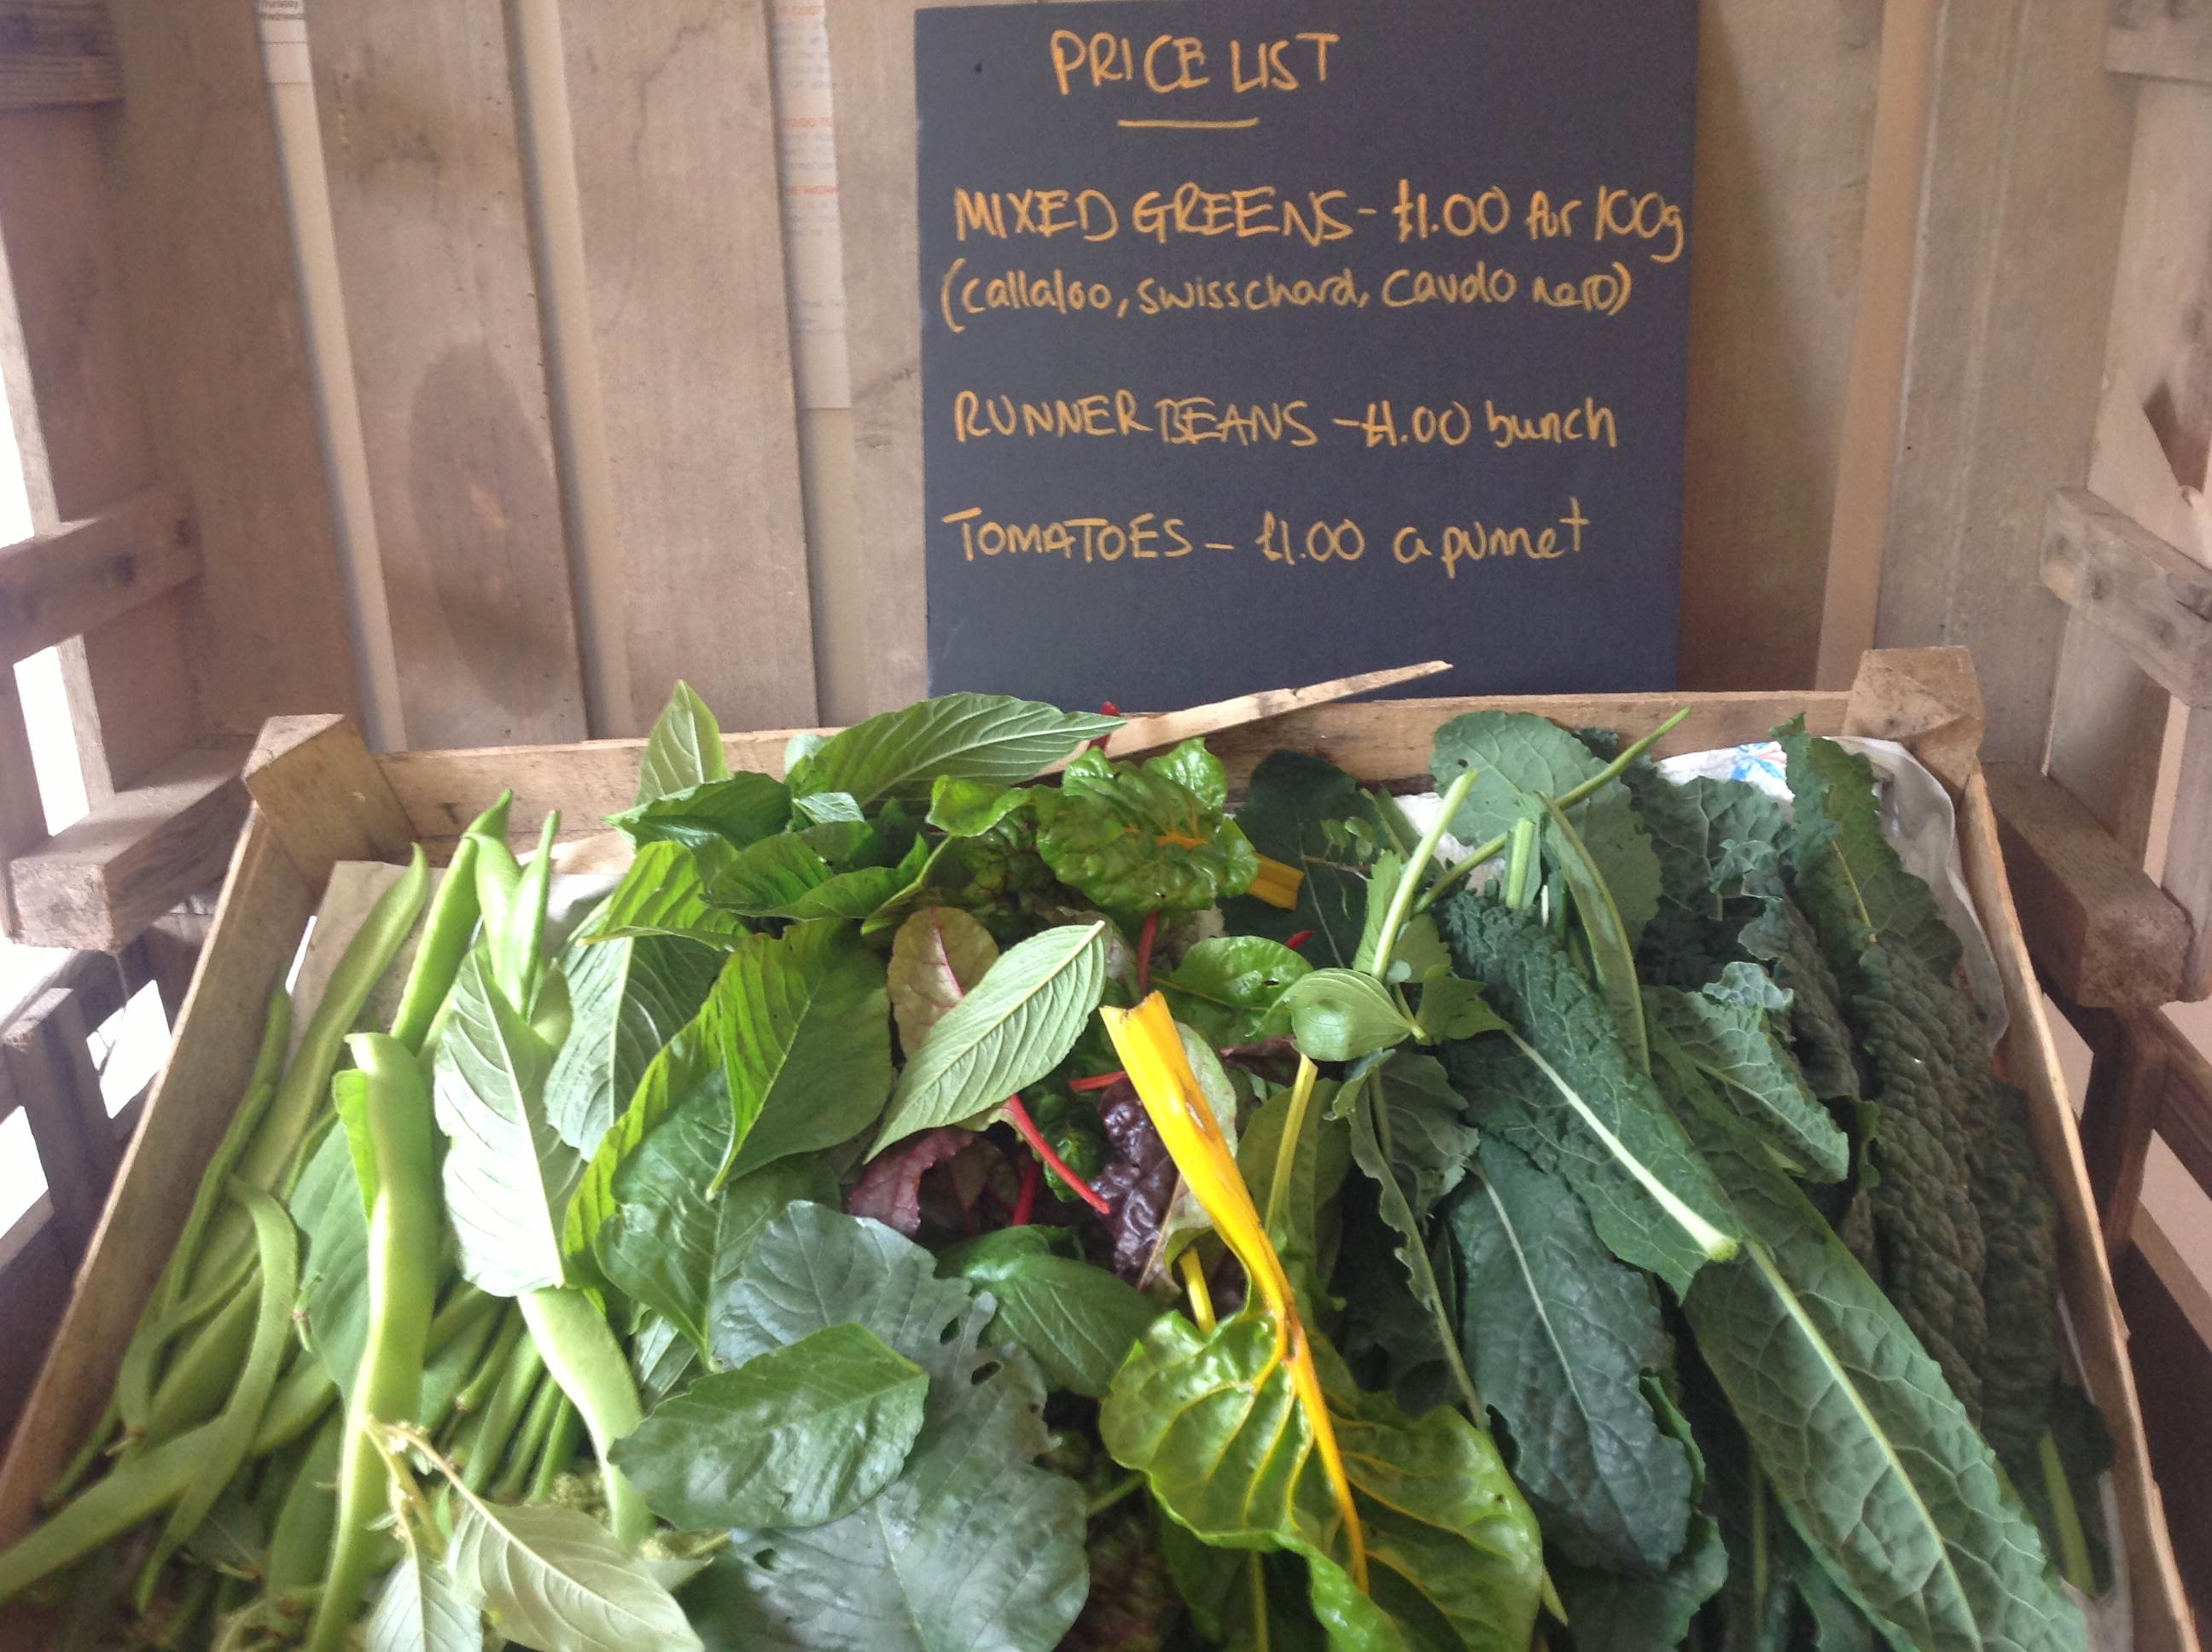 PRICE LIST
MIXED GREENS - £1.00 for 100g
(callaloo, swisschard, cavolo nero)
RUNNER BEANS - £1.00 bunch
TOMATOES - £1.00 a punnet